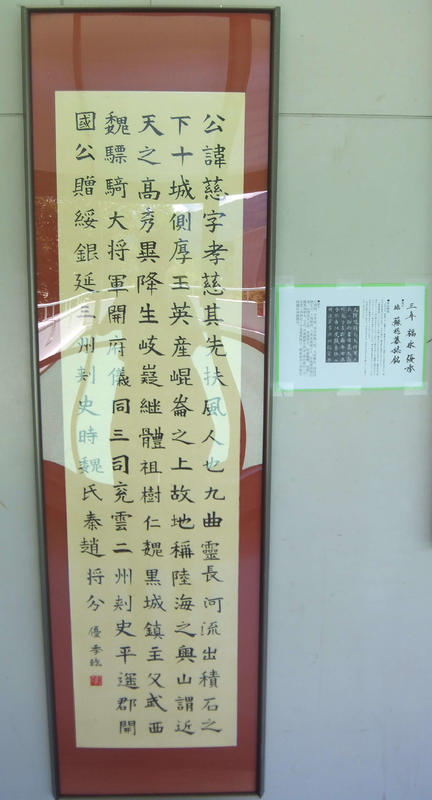 公諱慈字孝慈其先扶風人也九曲靈長河流出積石之
下十城側厚玉英産崐崙之上故地稱陸海之奥山謂近
天之高秀異降生岐嶷継體祖樹仁魏黒城鎮主父武西
魏驃騎大将軍開府儀同三司兖雲二州刾史平遥郡開
國公贈綏銀延三州刾史時魏氏秦趙将分
優季臨
三年 福永 優季
臨 蘇慈墓誌銘